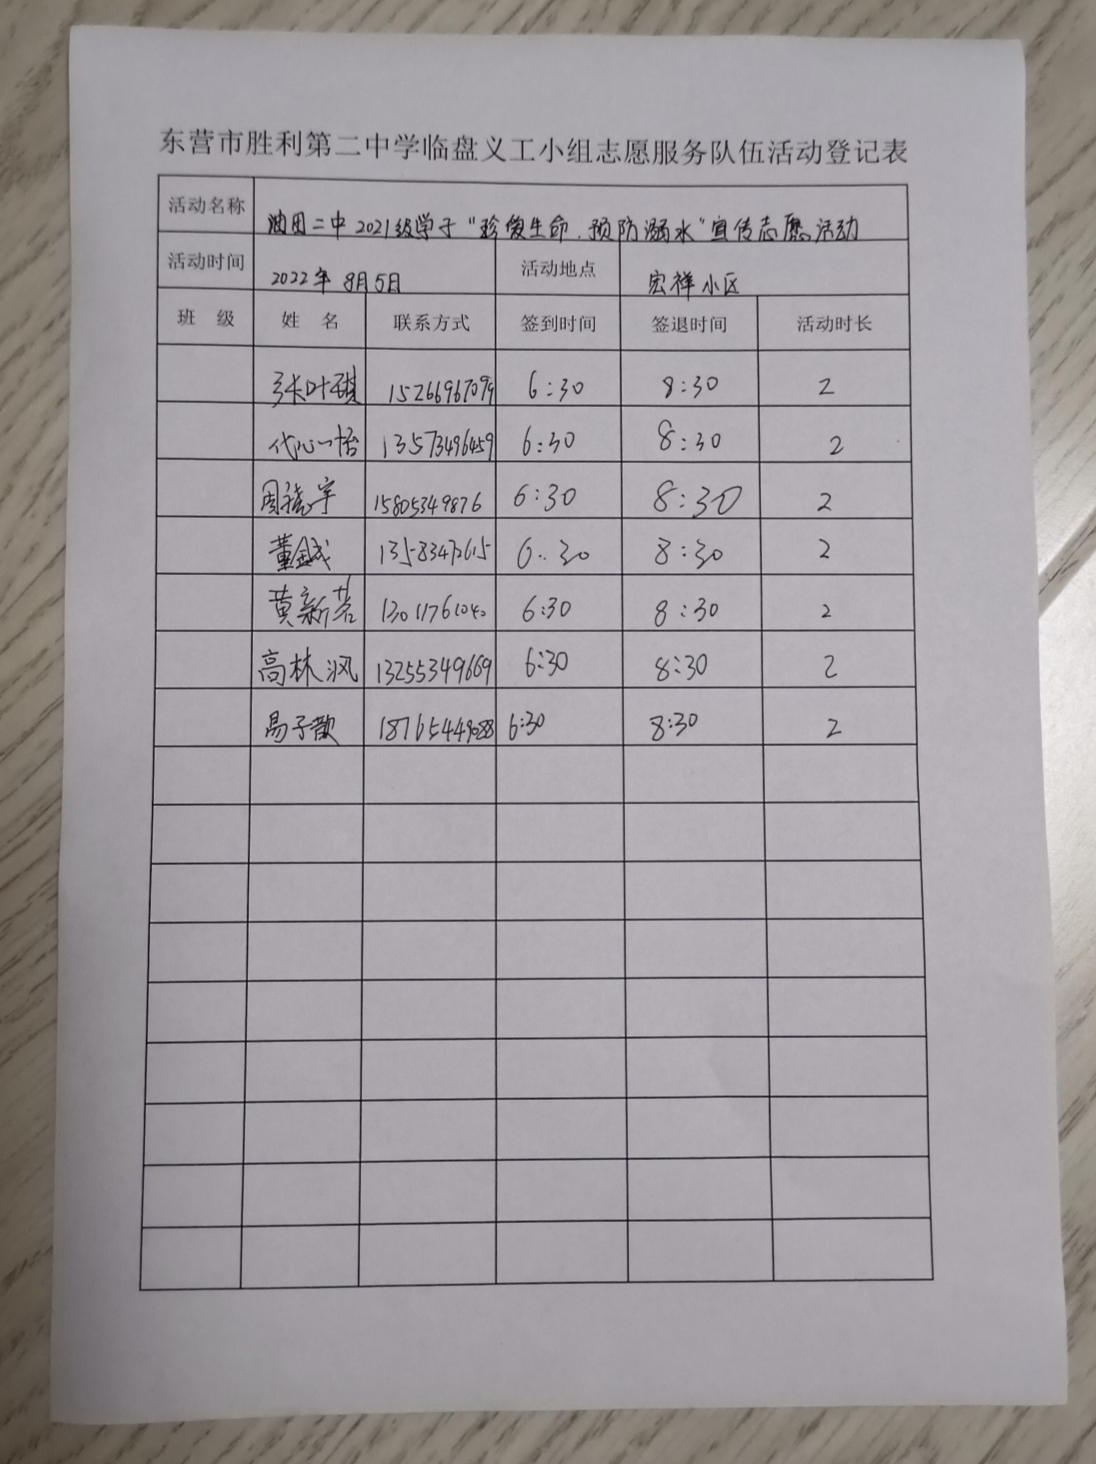 东营市胜利第二中学临盘义工小组志愿服务队伍活动登记表
活动名称 油田二中2021级学子“珍爱生命.预防溺水”宣传志愿活动
活动时间 2022年8月5日 活动地点 宏祥小区
班 级 姓 名 联系方式 签到时间 签退时间 活动时长
张叶琪 15266967099 6:30 8:30 2
代心一悟 13573496459 6:30 8:30 2
周晓宇 15805349876 6:30 8:30 2
董金成 6:30 8:30 2
黄新茗 13011761040 6:30 8:30 2
高林沨 13255349669 6:30 8:30 2
易子歆 18765449088 6:30 8:30 2